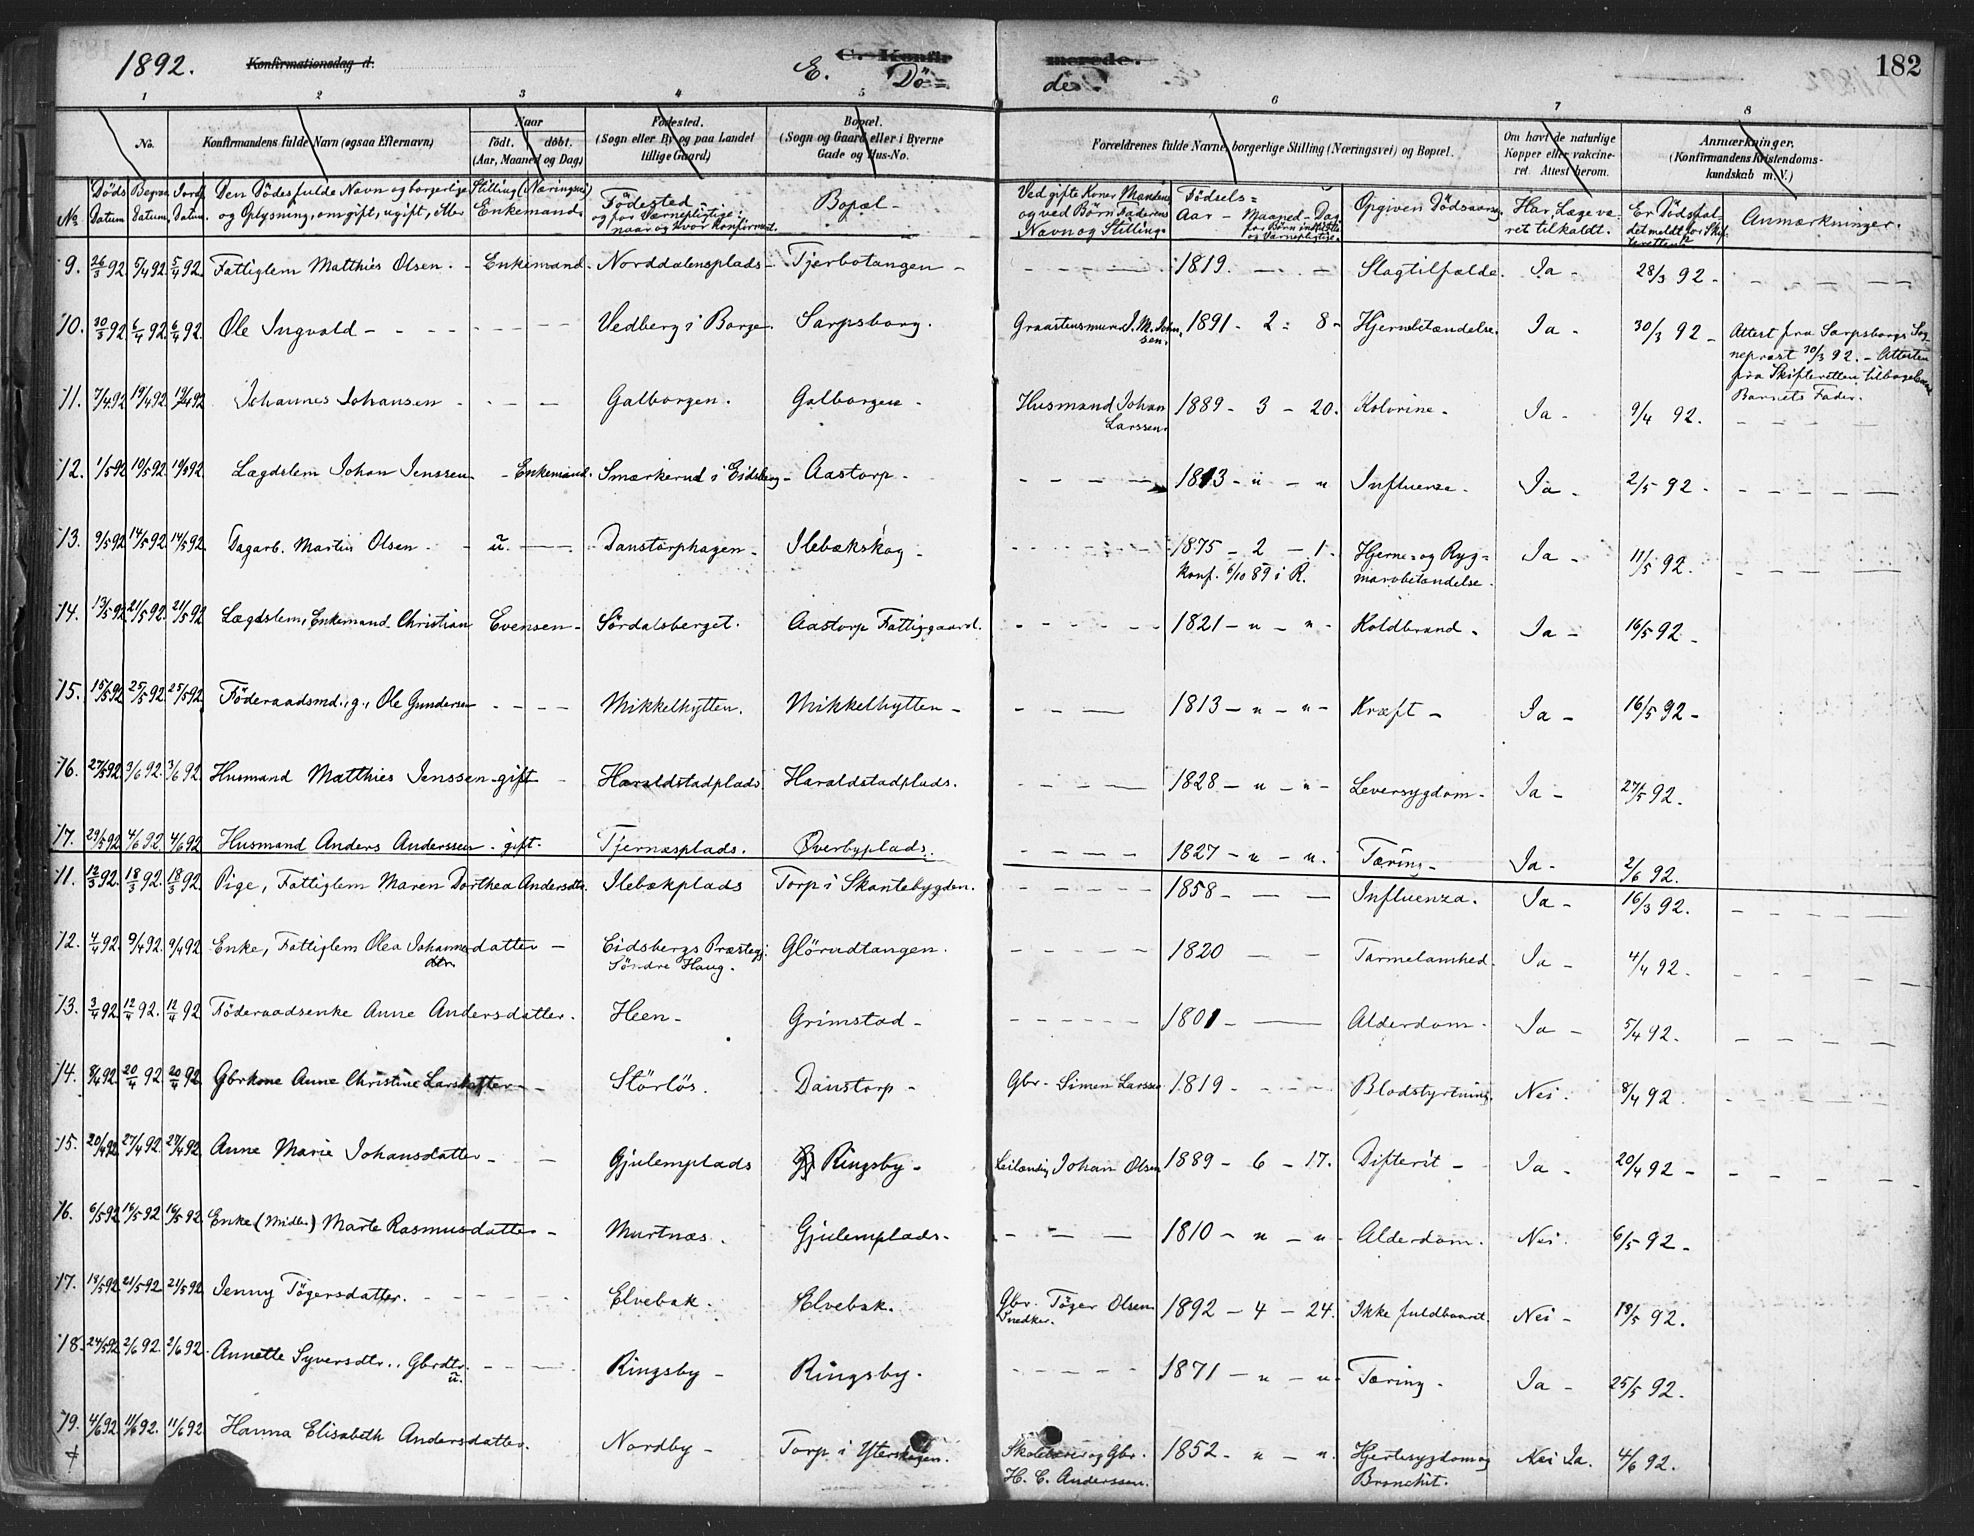 1892. Konfirmationsdag d. E. C. Konfirmerede. Døde. 182
1 2 3 4 5 6 7 8
No. Konfirmandens fulde Navn (ogsaa Efternavn) Naar født. døbt. (Aar, Maaned og Dag) Fødested. (Sogn eller By og paa Landet tillige Gaard) Bopæl. (Sogn og Gaard eller i Byerne Gade og Hus-No. Forældrenes fulde Navne, borgerlige Stilling (Næringsvei) og Bopæl. Om havt de naturlige Kopper eller vakcineret. Attest herom. Anmærkninger. (Konfirmandens Kristendomskundskab m. V.)
No. Døds Datum. Begrav. Datum. Jordf. Datum. Den Dødes fulde Navn og borgerlige Stilling (Næringsvei) og Oplysning, om gift, ugift, eller Enkemand. Fødested - og for Værnepligtige: naar og hvor konfirmeret. Bopæl - Ved gifte Koner Mandens og ved Børn Faderens Navn og Stilling. Fødsels= Aar - Maaned - Dag Opgiven Dødsaarsag. Har Læge været tilkaldt. Er Dødsfaldet meldt for Skifteretten? Anmærkninger.
9. 26/3 92 5/4 92 5/4 92. Fattiglem Matthis Olsen. - Enkemand. Norddalensplads - Tjerbotangen - 1819. Slagtilfælde. Ja - 28/3 92 -
10. 30/3 92 6/4 92 6/4 92. Ole Ingvald - Vedberg i Borge. Sarpsborg. Graastensmurer J. M. Johnsen. 1891 - 2 - 8 - Hjernebetændelse. Ja - 30/3 92 - Attest fra Sarpsborgs Sogneprest 30/3 92. - Attesten fra Skifteretten Barnets Fader.
11. 7/4 92 19/4 92 19/4 92 Johannes Johansen - Galborgen. Galborgen - Husmand Johan Larssen. 1889 - 3 - 20. Kolerine - Ja - 9/4 92.
12. 1/5 92 10/5 92 10/5 92. Lægdslem Johan Jenssen - Enkemand. Smærkerud i Eidsberg - Aastorp - 1813 - " - " Influenze. Ja - 2/5 92 -
13. 9/5 92 14/5 92 14/5 92. Dagarb. Martin Olsen - u. Danstorphagen - Ilebækskog - 1875 - 2 - 1. konf. 6/10 89 i R. Hjerne- og Rygmarvbetændelse. Ja - 11/5 92.
14. 13/5 92 21/5 92. 21/5 92 Lægdslem, Enkemand Christian Evensen - Sørdalsberget. Aastorp Fattiggaard. 1821 - " - " - Koldbrand - Ja - 16/5 92 -
15. 15/5 92 25/5 92 25/5 92. Føderaadsmd., g., Ole Gundersen Mikkelhytten. Mikkelhytten - 1813 - " - " - Kræft - Ja - 16/5 92 -
16. 27/5 92 3/6 92. 3/6 92. Husmand Matthis Jenssen - gift - Haraldstadplads Haraldstadplads. 1828 - " - " - Leversygdom - Ja - 27/5 92.
17. 29/5 92 4/6 92. 4/6 92 Husmand Anders Anderssen - gift. Tjernæsplads. Øverbyplads. 1827 - " - ". Tæring - Ja - 2/6 92.
11. 12/3 92. 18/3 92. 18/3 92 Pige, Fattiglem Maren Dorthea Andersdtr. Ilebækplads Torp i Skantebygden. 1858 - Influenza. Ja - 16/3 92.
12. 4/4 92. 9/4 92. 9/4 92 Enke, Fattiglem Olea Johannesdatter - Eidsbergs Præstegj. Søndre Haug. Glørudtangen. 1820 Tarmelamhed. Ja - 4/4 92.
13. 3/4 92. 12/4 92. 12/4 92 Føderaadsenke Anne Andersdatter. Heen - Grimstad - 1801 - Alderdom - Ja - 5/4 92.
14. 8/4 92. 20/4 92 20/4 92. Gbrkone Anne Christine Larsdatter - Størløs. Danstorp - Gbr. Simen Larssen 1819 - Blodstyrtning. Nei. 8/4 92.
15. 20/4 92. 27/4 92. 27/4 92. Anne Marie Johansdatter - Gjulemplads Ringsby - Leilænding Johan Olsen 1889 - 6 - 17. Difterit - Ja - 20/4 92 -
16. 6/5 92. 16/5 92 16/5 92. Enke Marte Rasmusdatter - Murtnæs. Gjulemplads - 1810 - " - " - Alderdom. Nei. 6/5 92 -
17. 18/5 92. 21/5 92 21/5 92. Jenny Tøgersdatter. Elvebak. Elvebak. Gbr. Tøger Olsen Snedker. 1892 - 4 - 24. Ikke fuldbaaret. Nei - 18/5 92.
18. 24/5 92. 2/6 92. 2/6 92. Annette Syversdtr., Gbrdtr. u. Ringsby - Ringsby. 1871 - " - " - Tæring - Ja - 25/5 92.
19. 4/6 92. 11/6 92. 11/6 92 Hanna Elisabeth Andersdatter. Nordby - Torp i Ytterskogen. Skolelærer og Gbr. H. C. Anderssen. 1852 - " - ". Hjertesygdom og Bronchit. Nei Ja. 4/6 92.